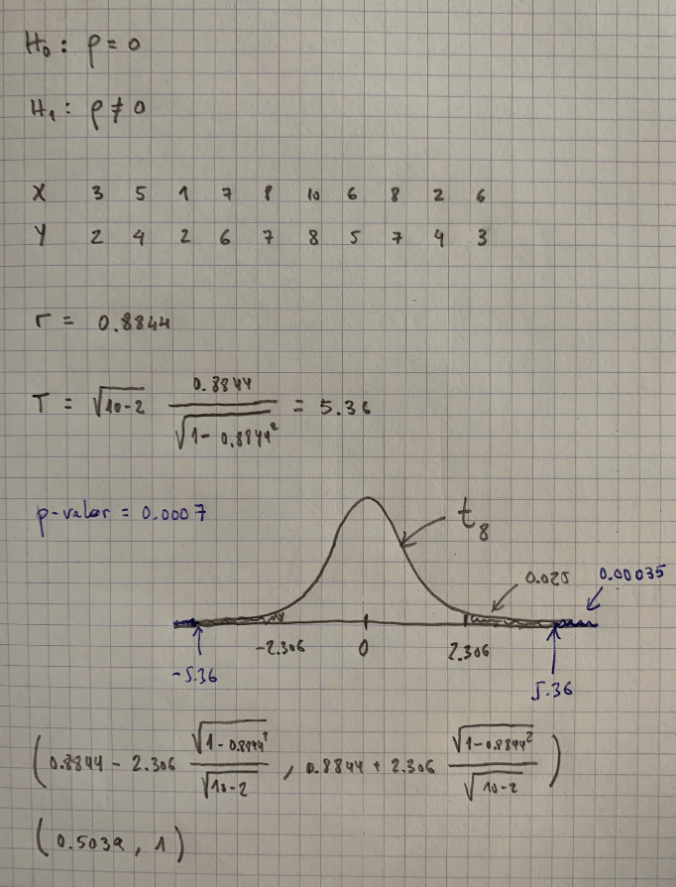 H₀: ρ = 0
H₁: ρ ≠ 0
X 3 5 1 7 8 10 6 8 2 6
Y 2 4 2 6 7 8 5 7 4 3
r = 0.8844
T = √(10-2) 0.8844 / √(1 - 0.8844²) = 5.36
p-valor = 0.0007
t₈
0.025 0.00035
-2.306 0 2.306
-5.36 5.36
(0.8844 - 2.306 √(1 - 0.8844²) / √(10-2) , 0.8844 + 2.306 √(1 - 0.8844²) / √(10-2))
(0.5039 , 1)